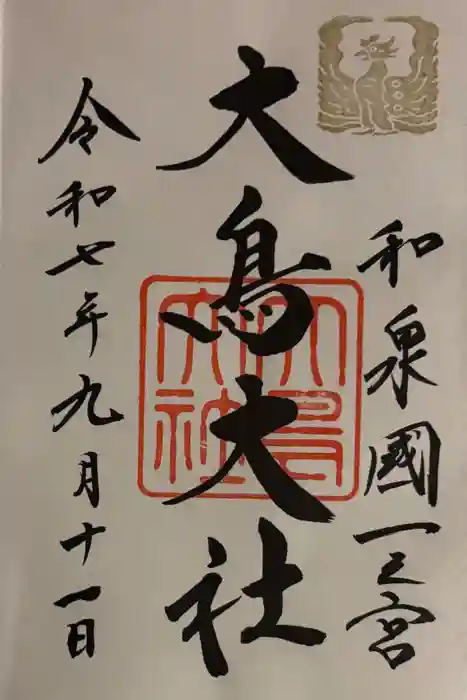 和泉國一之宮
大鳥大社
大鳥大社
令和七年九月十一日